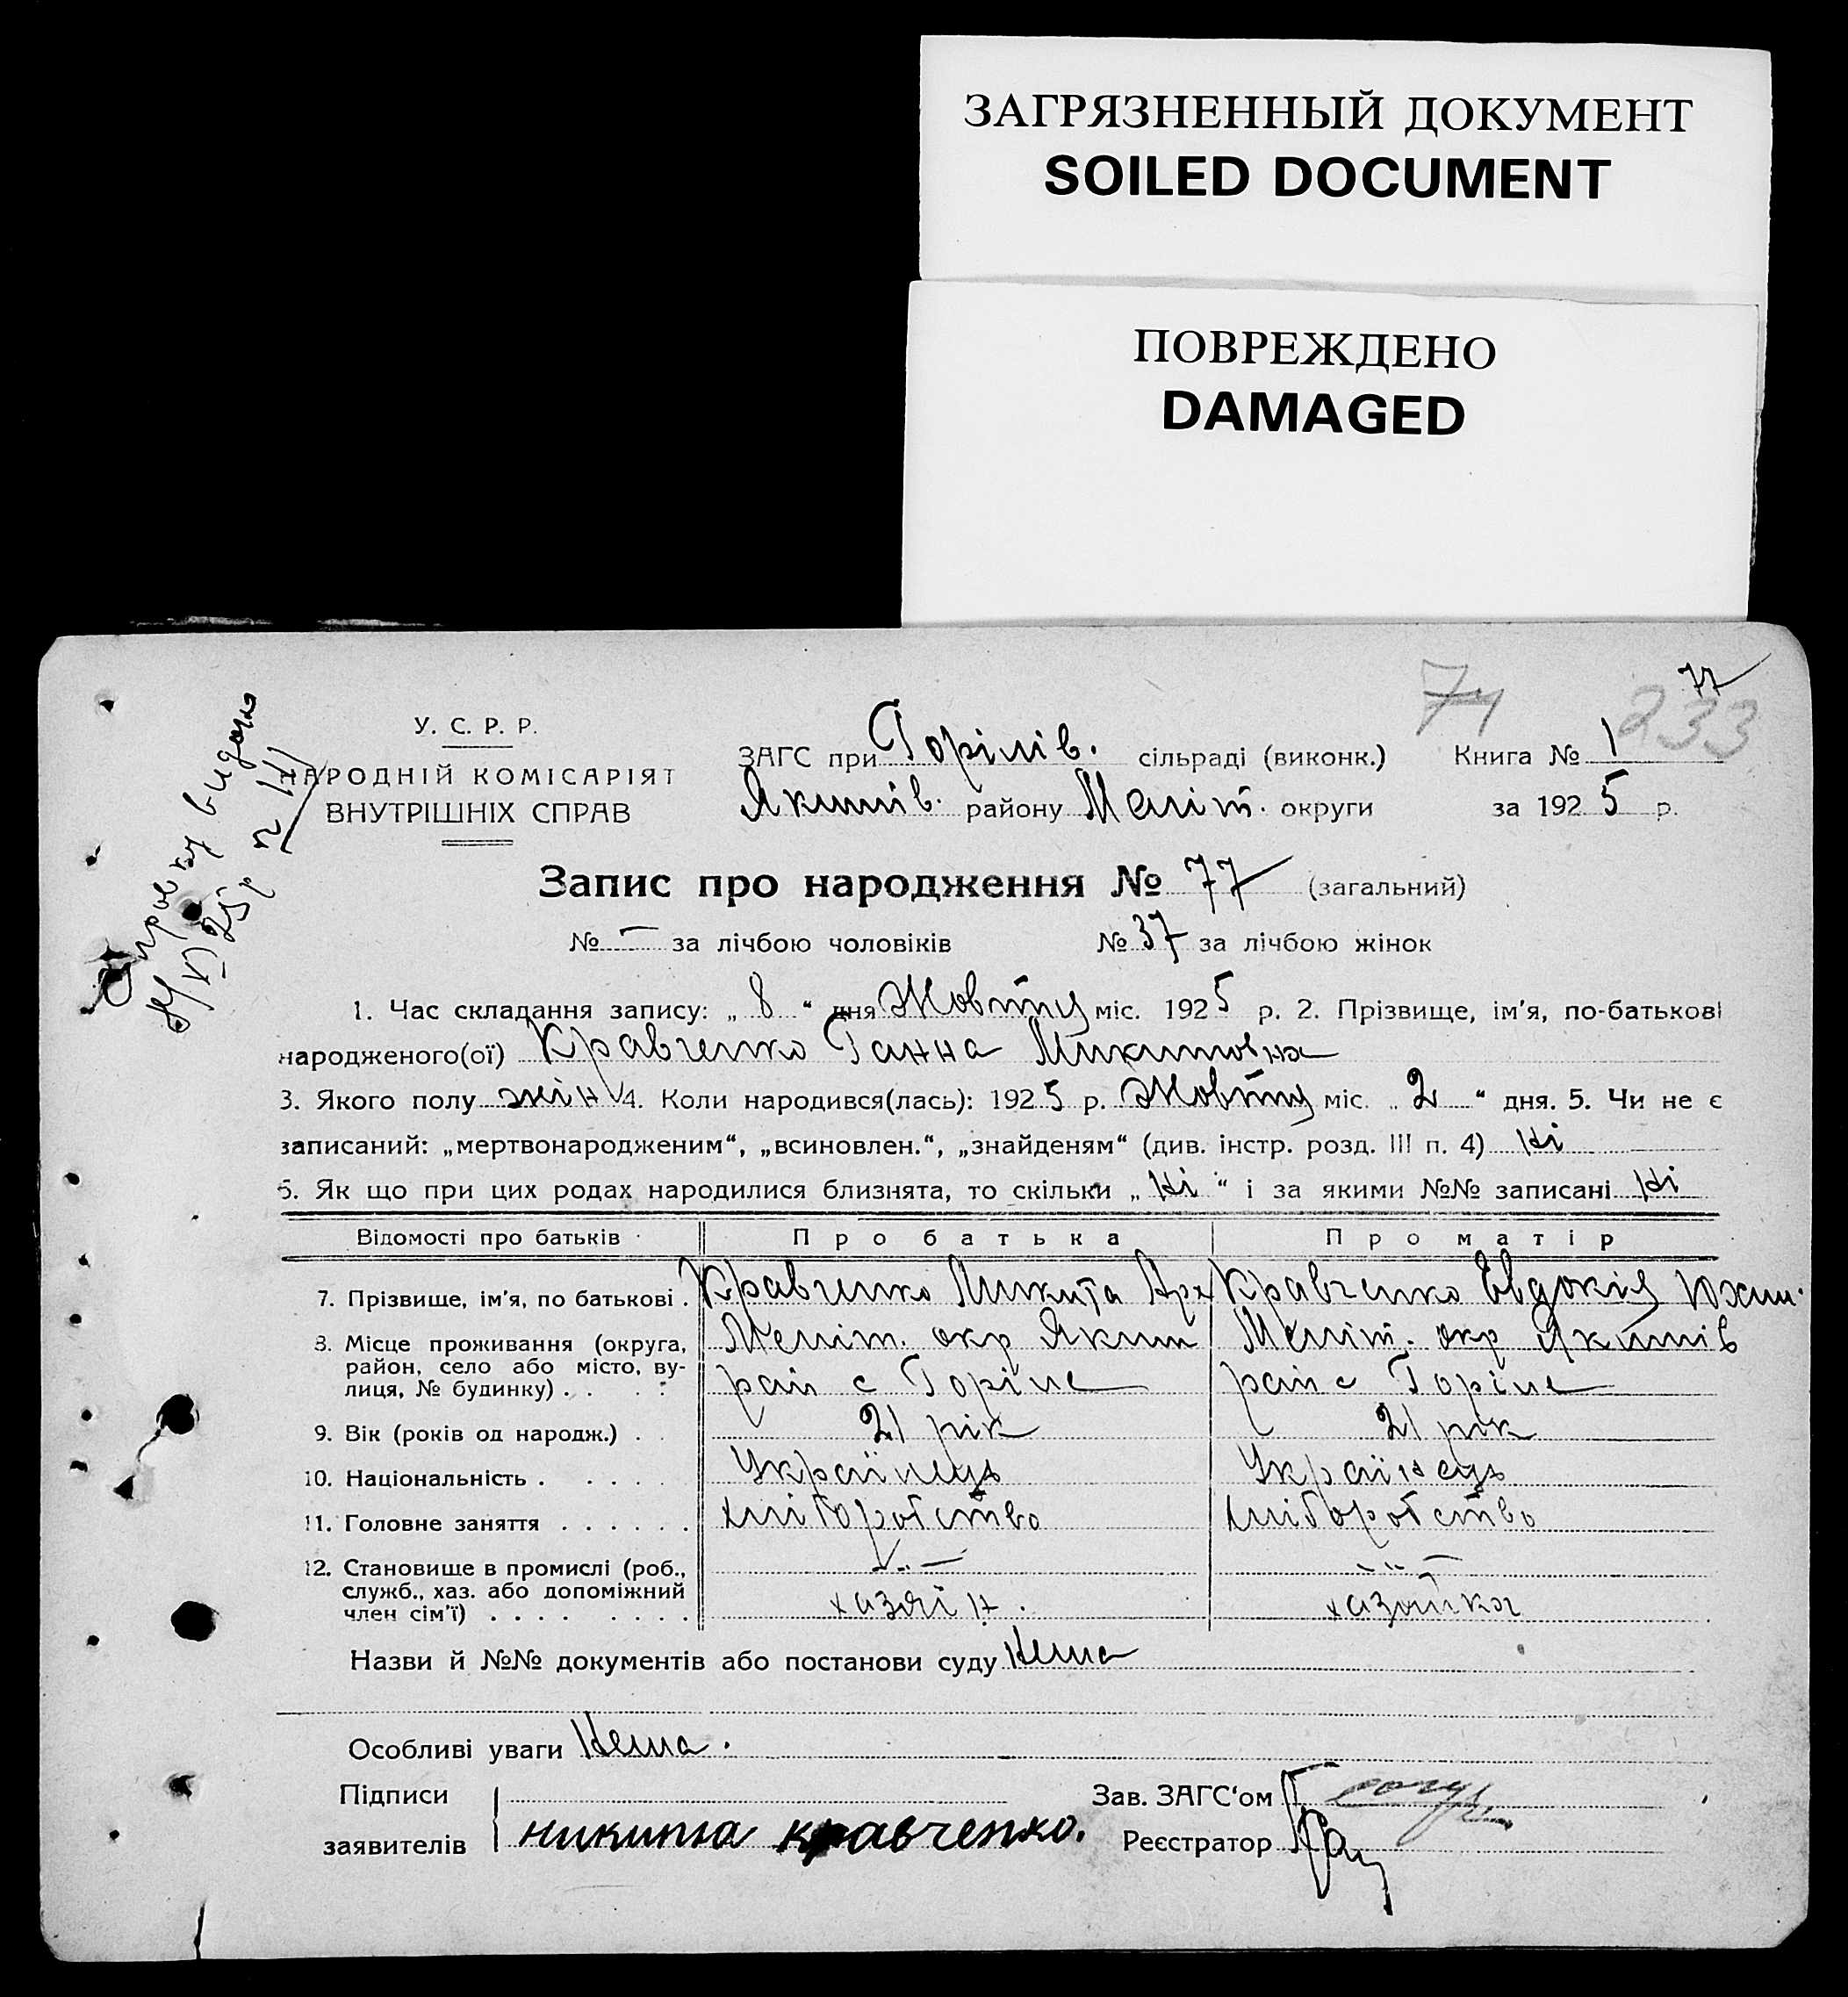 ЗАГРЯЗНЕННЫЙ ДОКУМЕНТ
SOILED DOCUMENT
ПОВРЕЖДЕНО
DAMAGED
77
74 233
У. С. Р. Р.
НАРОДНІЙ КОМІСАРІЯТ
ВНУТРІШНІХ СПРАВ
ЗАГС при Горілів. сільраді (виконк.) Книга № 1
Якимів. району Меліт. округи за 1925 р.
Запис про народження № 77 (загальний)
№ — за лічбою чоловіків № 37 за лічбою жінок
1. Час складання запису: „ 8 “ дня Жовтня міс. 1925 р. 2. Прізвище, ім'я, по-батькові
народженого(ої) Кравченко Ганна Микитовна
3. Якого полу жін 4. Коли народився(лась): 1925 р. Жовтня міс. „ 2 “ дня. 5. Чи не є
записаний: „мертвонародженим“, „всиновлен.“, „знайденям“ (див. інстр. розд. III п. 4) Ні
6. Як що при цих родах народилися близнята, то скільки „ Ні “ і за якими №№ записані Ні
Відомості про батьків Про батька Про матір
7. Прізвище, ім'я, по батькові . Кравченко Микита Арх Кравченко Евдокія Юхим.
8. Місце проживання (округа, Меліт. окр Яким Меліт. окр Якимів
район, село або місто, ву-
лиця, № будинку) . . . : рай с Горіле рай с Горіле
9. Вік (років од народж.) . . 21 рік 21 рік
10. Національність . . . . . Українець Українець
11. Головне заняття . . . . . . хліборобство хліборобство
12. Становище в промислі (роб.,
служб., хаз. або допоміжний
член сім'ї) . . . . . . . . хазяїн. хазяйка
Назви й №№ документів або постанови суду Нема
Особливі уваги Нема.
Підписи Зав. ЗАГС'ом
заявителів никита кравченко. Реєстратор
Справку видано
25р